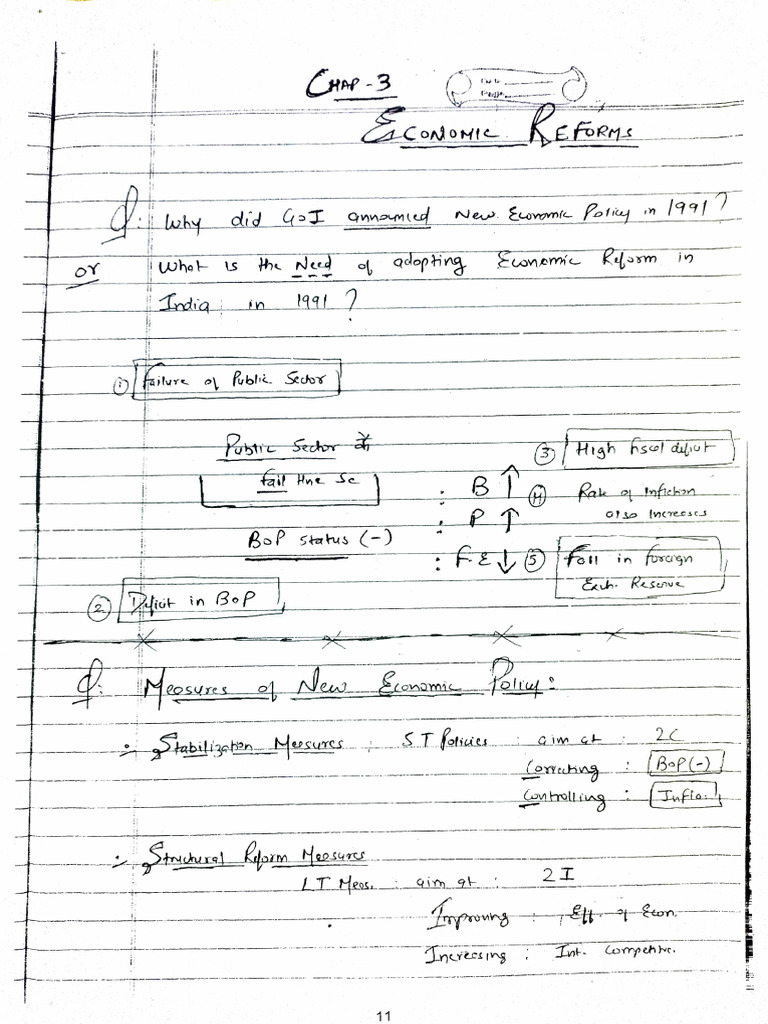 CHAP-3
ECONOMIC REFORMS
Q: Why did GoI announced New Economic Policy in 1991?
or What is the Need of adopting Economic Reform in
India in 1991?
① Failure of Public Sector
Public Sector के
fail Hne Se
BOP status (-)
② Deficit in BOP
③ High fiscal deficit
: B ↑
④ Rate of Infltion
also Increases
: P ↑
: F.E ↓ ⑤ Fall in foreign
Exch. Reserve
Q: Measures of New Economic Policy:
Stabilization Measures : S T Policies : aim at : 2C
Correcting : BOP(-)
Controlling : Infla.
Structural Reform Measures
LT Meas. : aim at : 2I
Improving : Eff. of Econ.
Increasing : Int. Competitc.
11